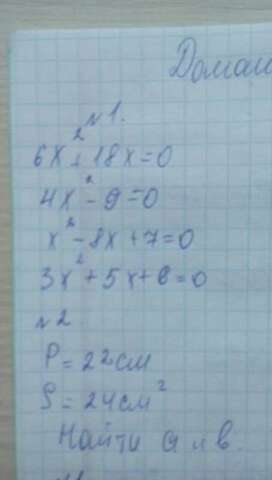 Домаш
№1.
6x² + 18x = 0
4x² - 9 = 0
x² - 8x + 7 = 0
3x² + 5x + 6 = 0
№2
P = 22см
S = 24см²
Найти a и b.